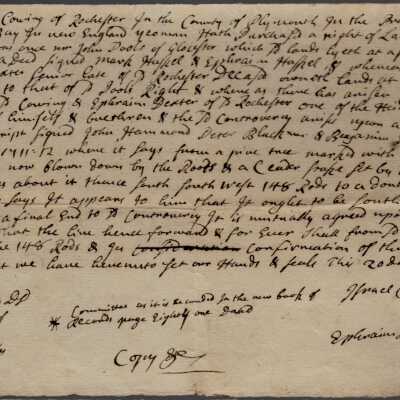 Cowing of Rochester In the County of Plymouth In the
Bay In new England yeoman Hath Purchased a right of La
once mr John Pools of Glocester which sd lands lyeth at a
a Deed signed mark Haskel & Ephraim Haskel & whereas
exter Senior Late of sd Rochester Deceasd owneth lands at
to that of sd Pools Right & where as there has arisen
sd Cowing & Ephraim Dexter of sd Rochester one of the Hei
himself & brethren & the sd Controversy arises upon a
signed John Hammond Peter Blackmer & Benjamin
1711-12 where it says from a pine tree marked with
now blown down by the Roots & a Ceader stake set by
about it thence South South west 148 Rods to a
says It appears to him that It ought to be South
a final End to sd Controversy It is mutually agreed upo
that the line hence forward & for Ever Shall
148 Rods & Confirmation of th
we have hereunto set our Hands & seals This 20 d
Committee as it is recorded In the new book of
Records page Eighty one
Israel
Ephraim
Copy